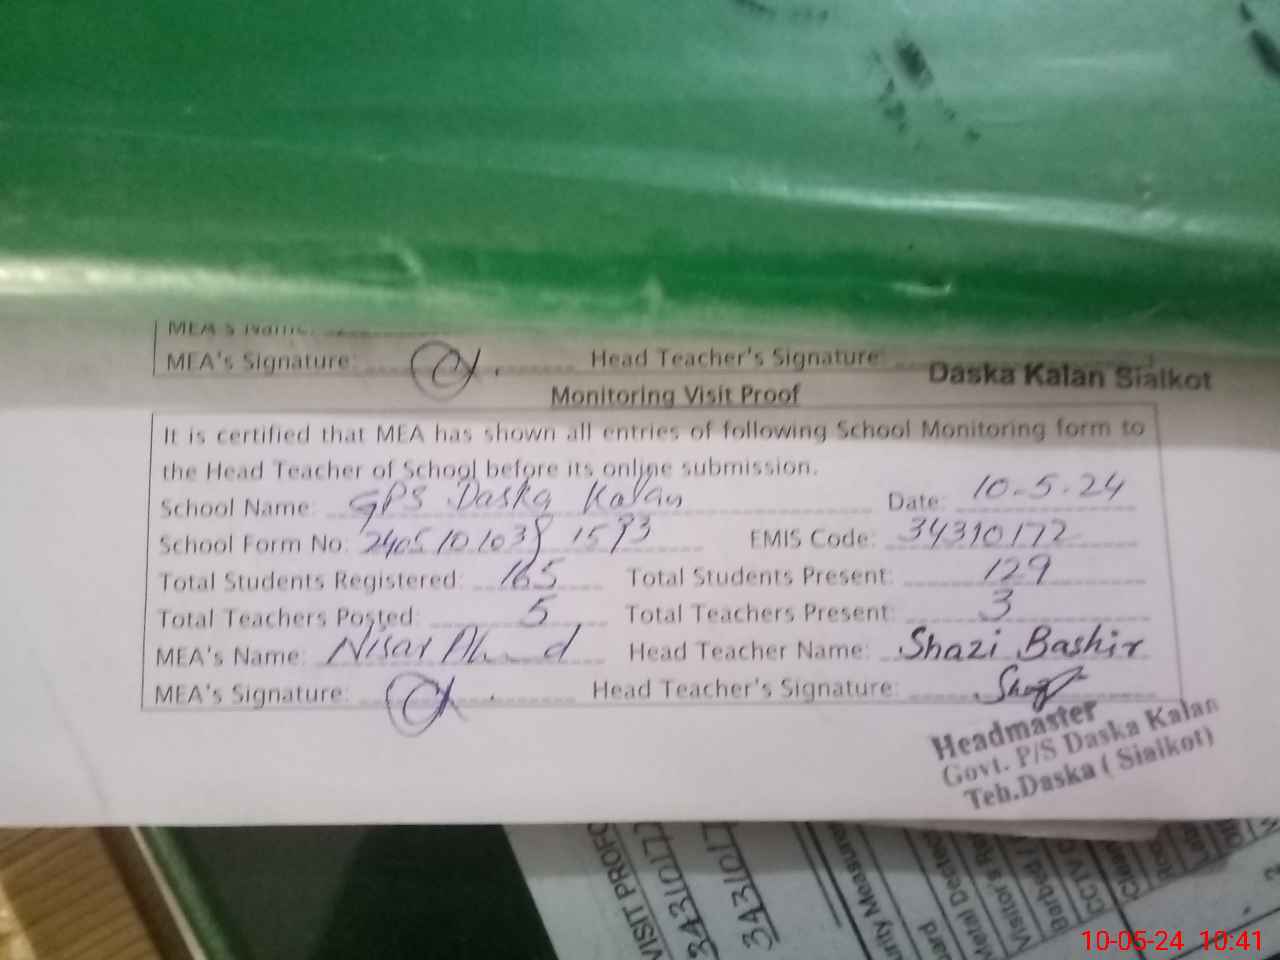 MEA's Name:
MEA's Signature: Head Teacher's Signature:
Daska Kalan Sialkot
Monitoring Visit Proof
It is certified that MEA has shown all entries of following School Monitoring form to
the Head Teacher of School before its online submission.
School Name: GPS Daska Kalan Date: 10-5-24
School Form No: EMIS Code: 34310172
Total Students Registered: 165 Total Students Present: 129
Total Teachers Posted: 5 Total Teachers Present: 3
MEA's Name: Nisar Ahmad Head Teacher Name: Shazi Bashir
MEA's Signature: Head Teacher's Signature:
Headmaster
Govt. P/S Daska Kalan
Teh.Daska ( Sialkot)
VISIT
Metal
CCTV
10-05-24 10:41